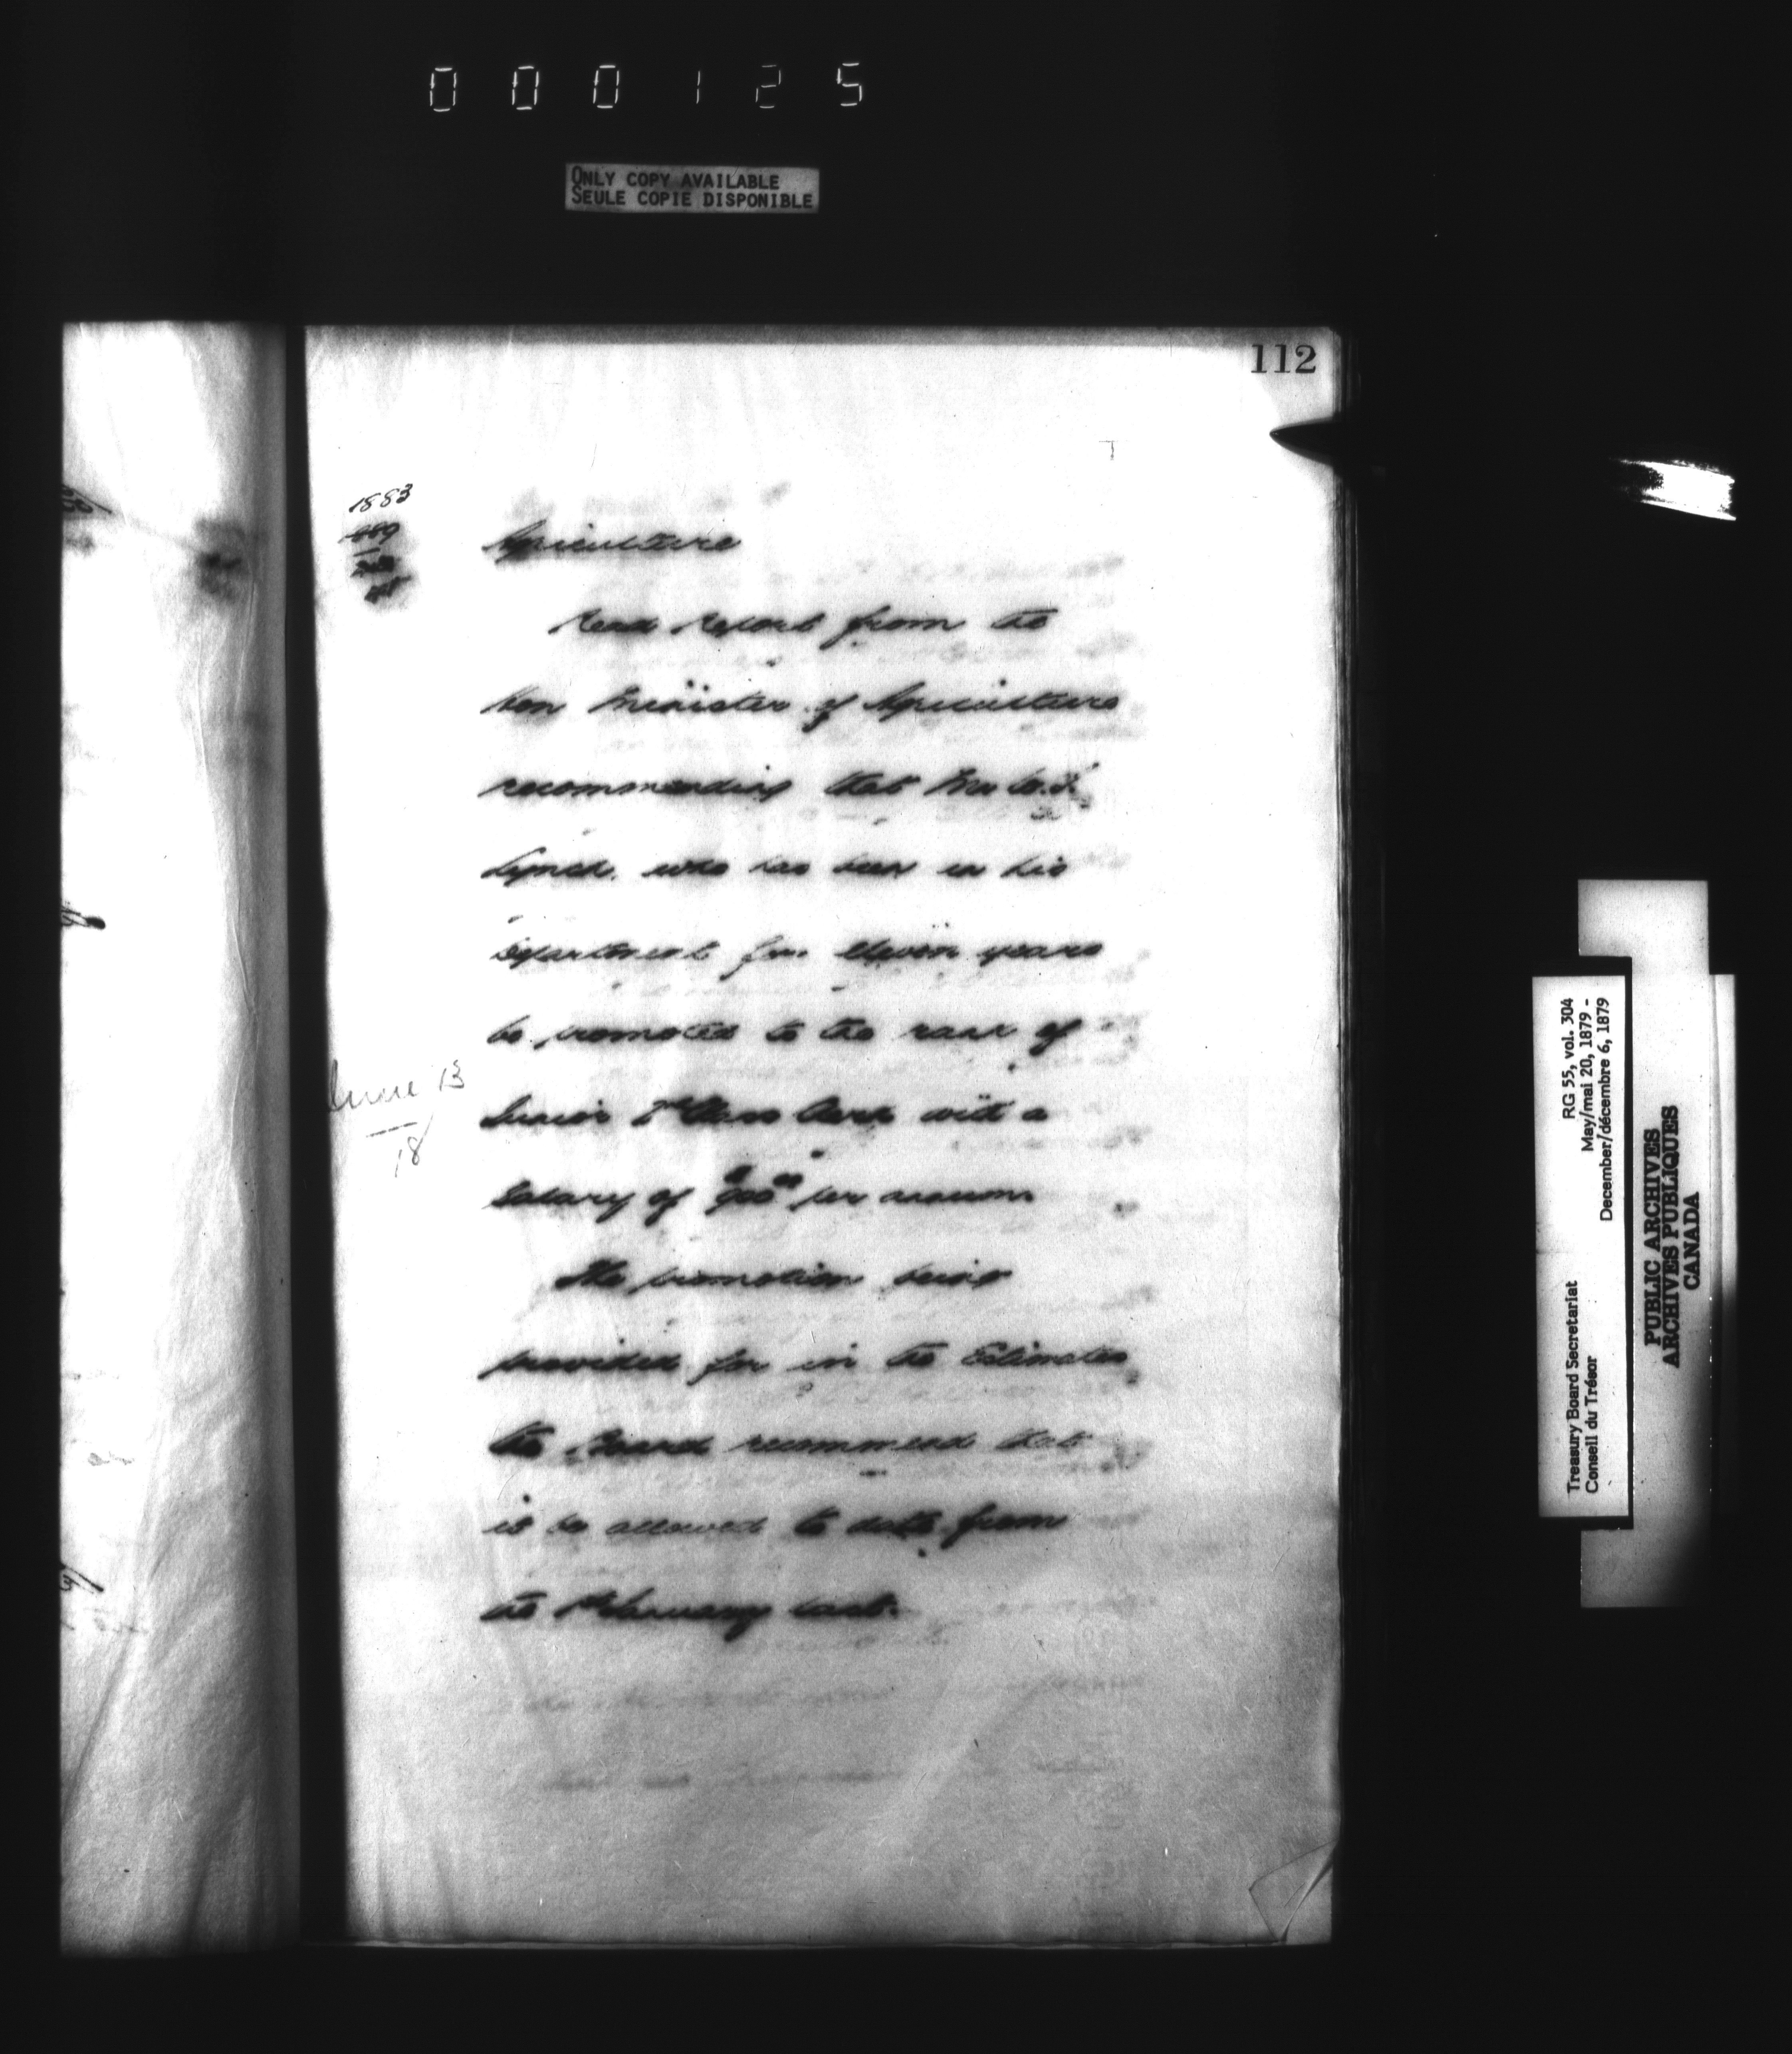 000125
ONLY COPY AVAILABLE
SEULE COPIE DISPONIBLE
112
1883
Agriculture
Read report from the
Hon Minister of Agriculture
recommending that Mr W.J.
Lynch, who has been in his
Department for eleven years
be promoted to the rank of
June 13
18
Junior 2nd Class Clerk with a
Salary of 900 00 per annum
The promotion being
provided for in the Estimates
the Board recommend that
it be allowed to date from
the 1st January last.
RG 55, vol. 304
May/mai 20, 1879 -
December/décembre 6, 1879
Treasury Board Secretariat
Conseil du Trésor
PUBLIC ARCHIVES
ARCHIVES PUBLIQUES
CANADA